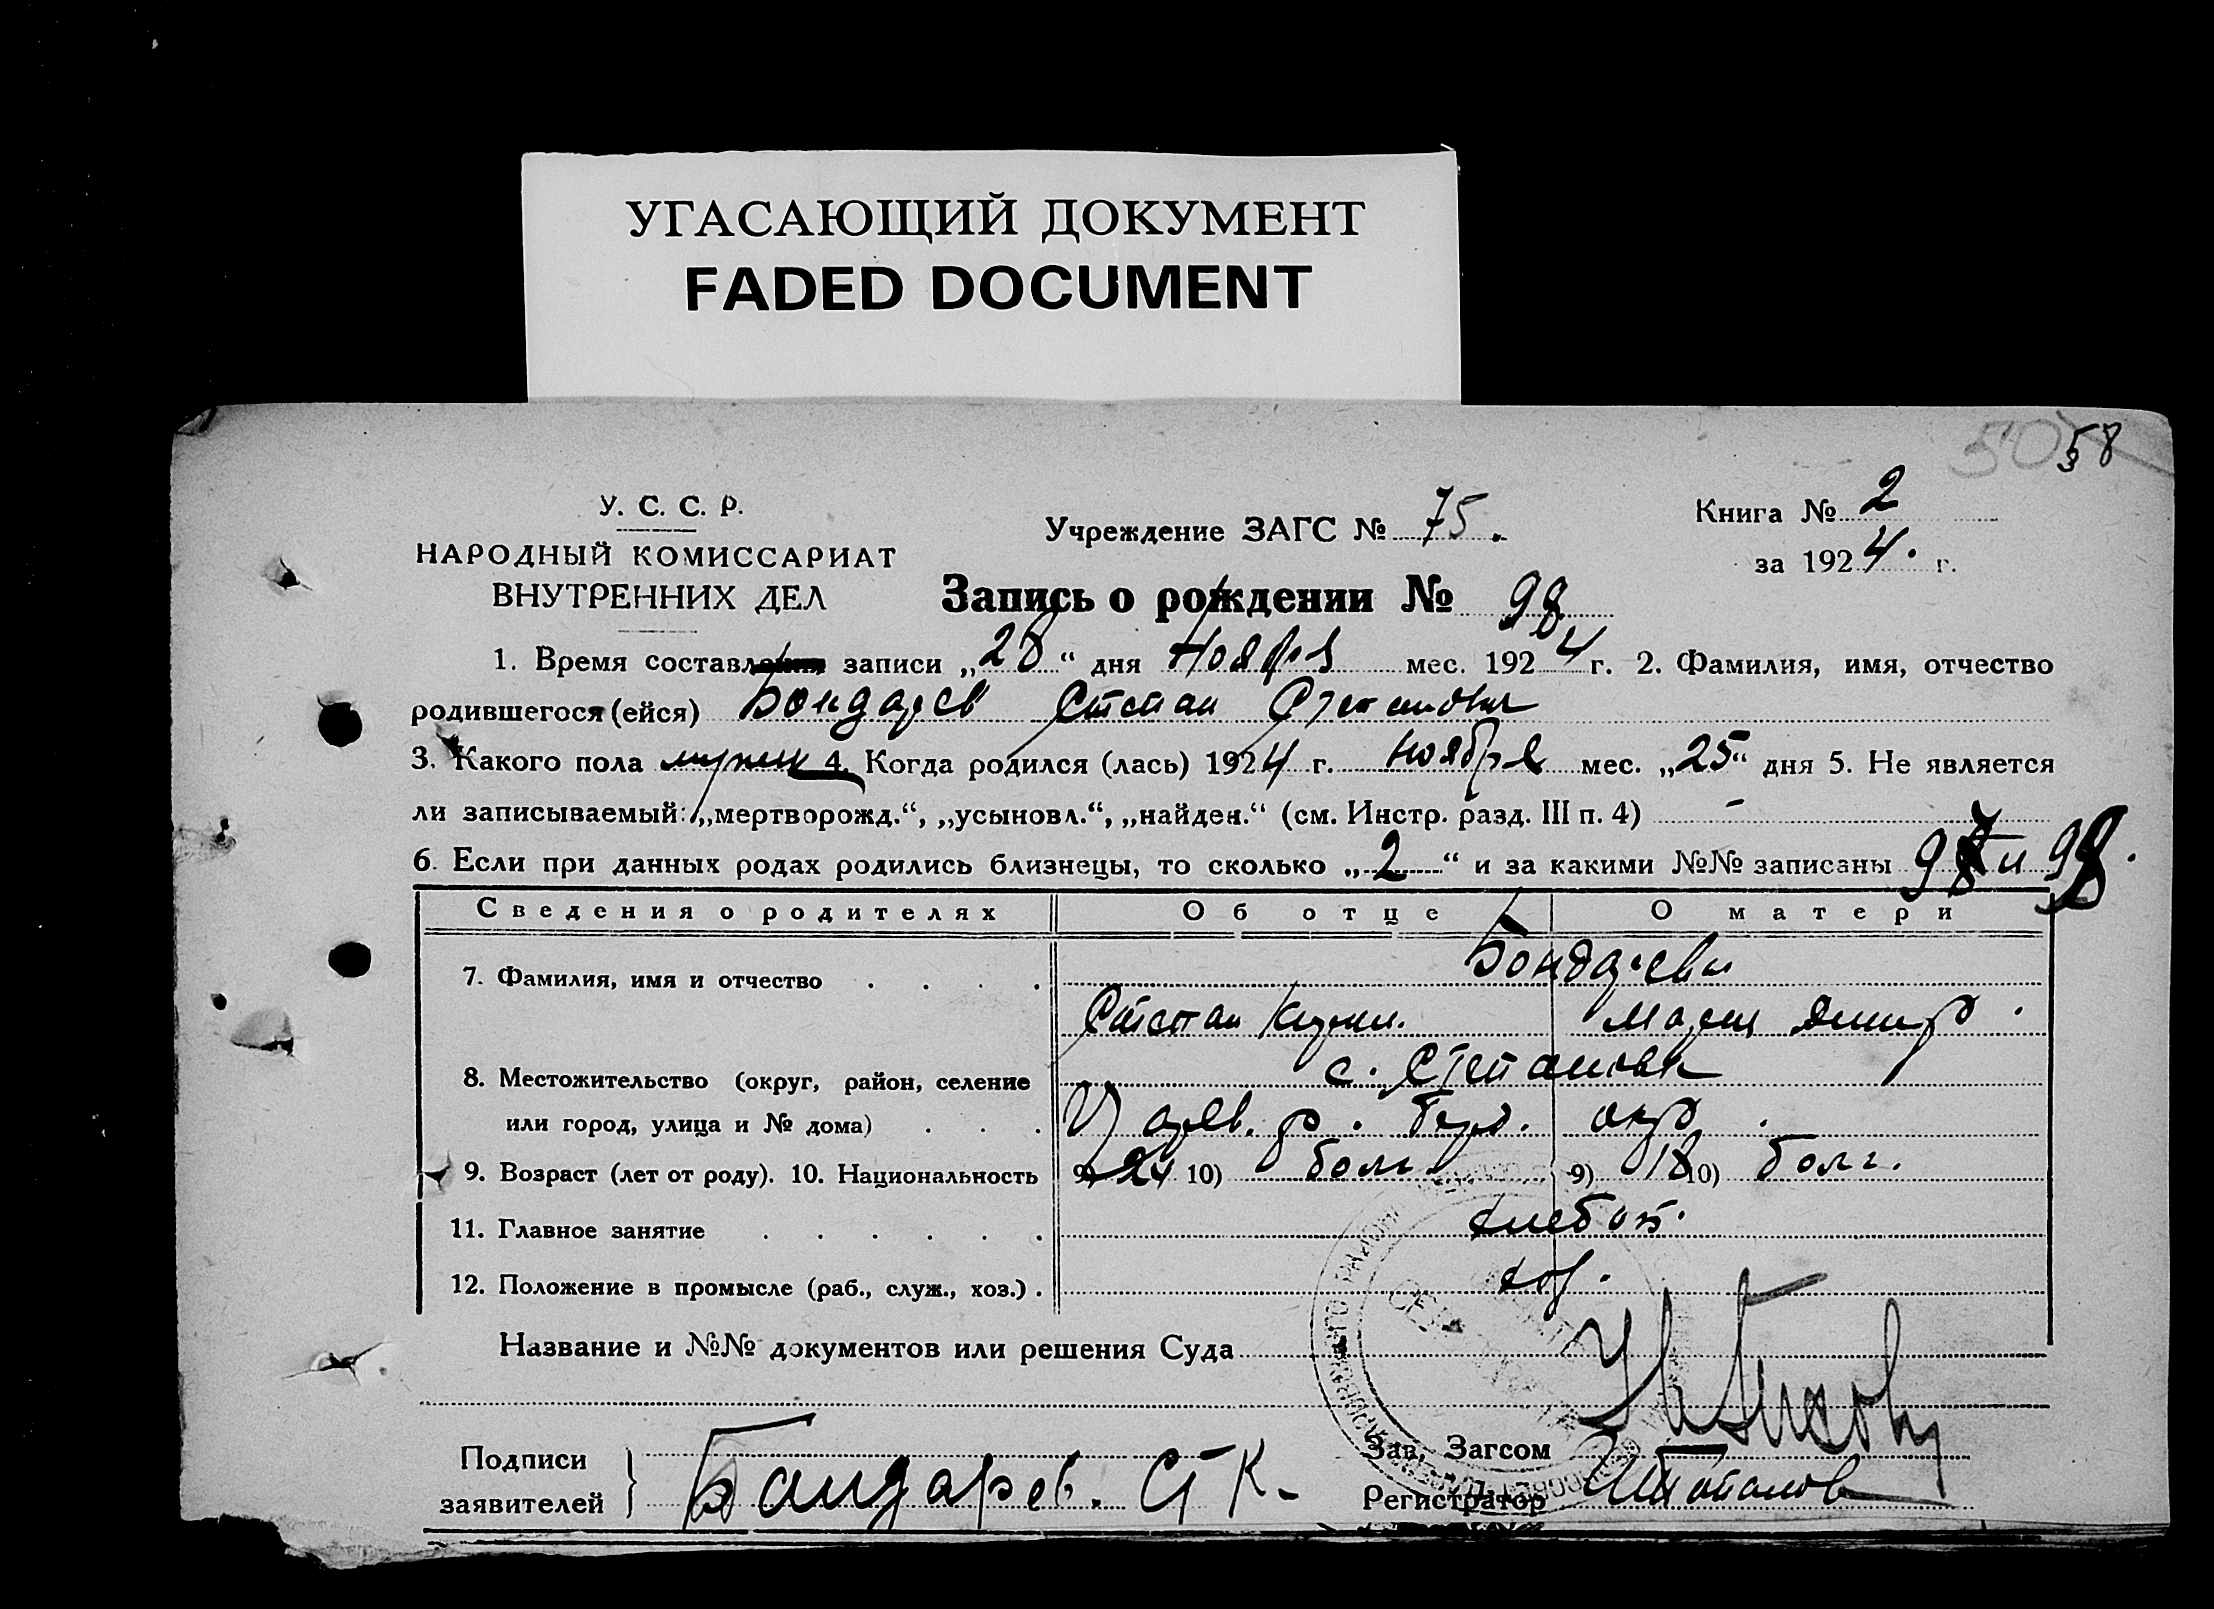 УГАСАЮЩИЙ ДОКУМЕНТ
FADED DOCUMENT
58
У. С. С. Р.
НАРОДНЫЙ КОМИССАРИАТ
ВНУТРЕННИХ ДЕЛ
Учреждение ЗАГС № 75.
Книга № 2
за 1924. г.
Запись о рождении № 98
1. Время составления записи „28“ дня Ноября мес. 1924 г. 2. Фамилия, имя, отчество
родившегося (ейся) Бондарев Степан Степанович
3. Какого пола мужск 4. Когда родился (лась) 1924 г. ноября мес. „25“ дня 5. Не является
ли записываемый: „мертворожд.“, „усыновл.“, „найден.“ (см. Инстр. разд. III п. 4) –
6. Если при данных родах родились близнецы, то сколько „2“ и за какими №№ записаны 97 и 98.
Сведения о родителях Об отце О матери
7. Фамилия, имя и отчество Бондаревы
Степан Кузми. Мария Димитр.
8. Местожительство (округ, район, селение с. Степановка
или город, улица и № дома) Цареv. р. Берд. окр.
9. Возраст (лет от роду). 10. Национальность 9) 24 10) болг 9) 18 10) болг.
11. Главное занятие хлебоп.
12. Положение в промысле (раб., служ., хоз.) хоз.
Название и №№ документов или решения Суда
Подписи
заявителей
Бандарев. Ст К.
Зав. Загсом
Регистратор